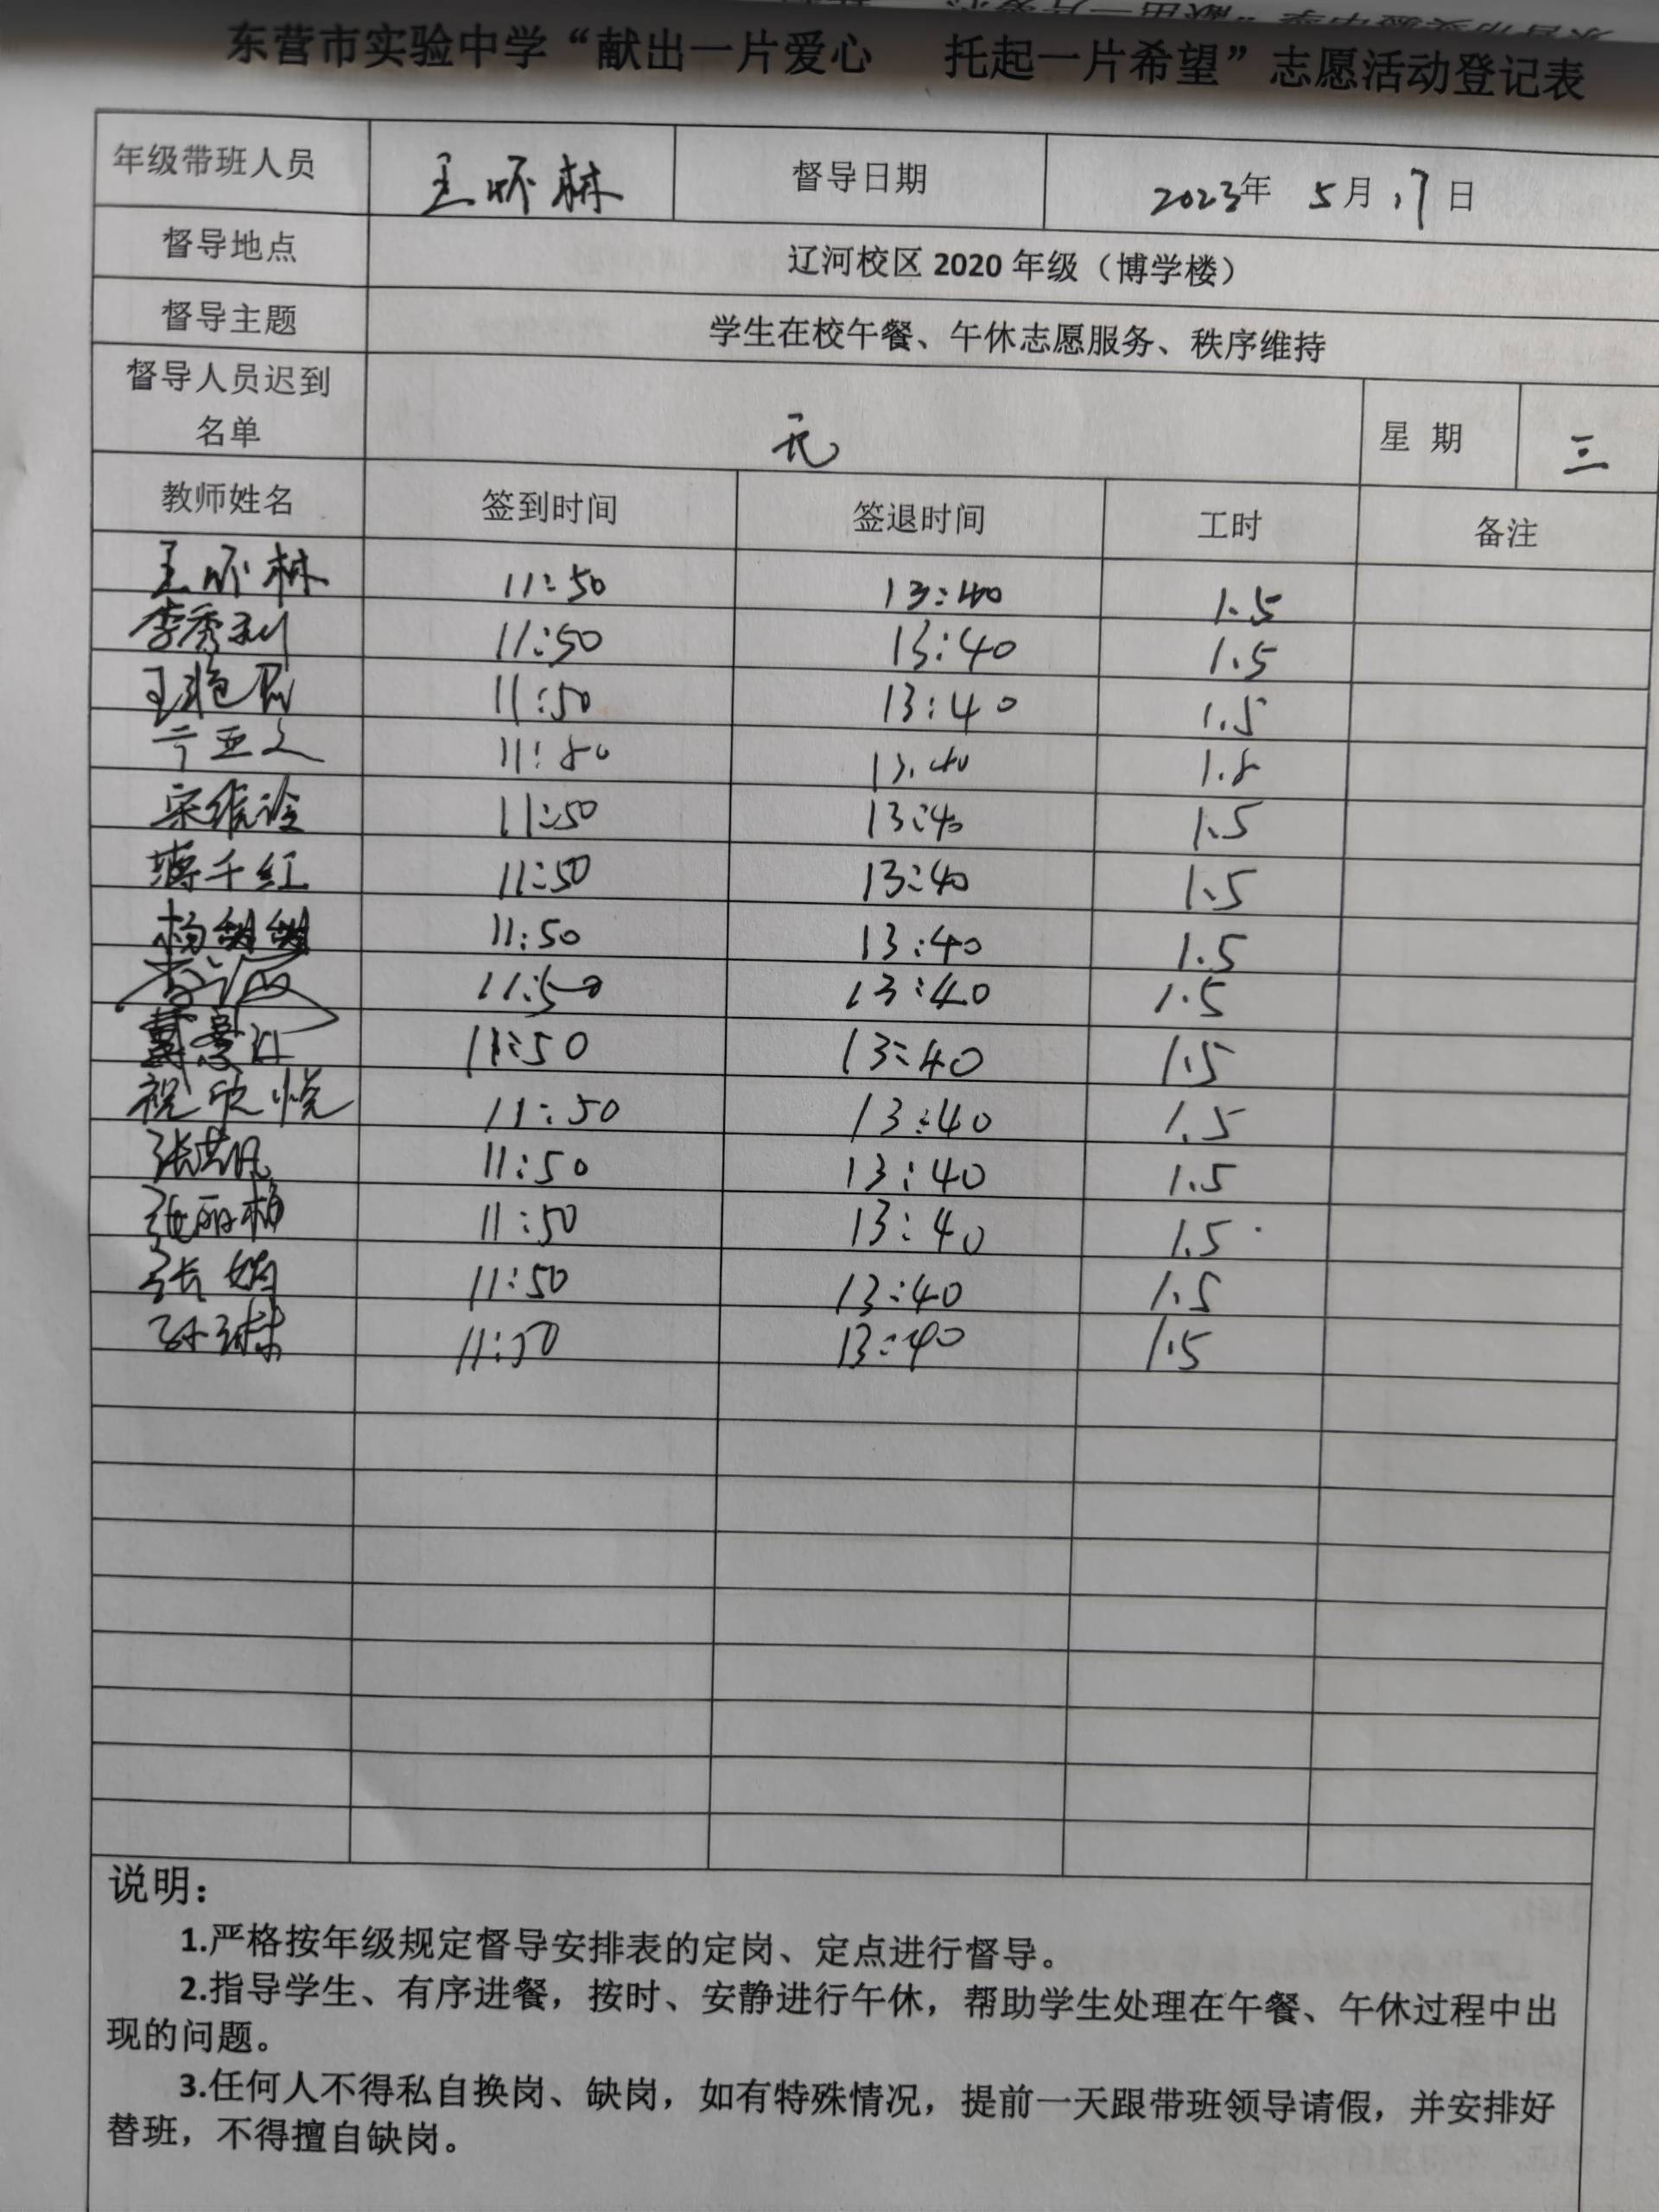 东营市实验中学“献出一片爱心 托起一片希望”志愿活动登记表
年级带班人员 王怀林 督导日期 2023年 5月17日
督导地点 辽河校区 2020 年级（博学楼）
督导主题 学生在校午餐、午休志愿服务、秩序维持
督导人员迟到名单 无 星 期 三
教师姓名 签到时间 签退时间 工时 备注
王怀林 11:50 13:40 1.5
李秀利 11:50 13:40 1.5
王艳 11:50 13:40 1.5
亚文 11:50 13:40 1.5
宋 11:50 13:40 1.5
薄千红 11:50 13:40 1.5
杨 11:50 13:40 1.5
11:50 13:40 1.5
11:50 13:40 1.5
祝欣悦 11:50 13:40 1.5
张 11:50 13:40 1.5
张丽梅 11:50 13:40 1.5
张娟 11:50 13:40 1.5
孙琳 11:50 13:40 1.5
说明：
1.严格按年级规定督导安排表的定岗、定点进行督导。
2.指导学生、有序进餐，按时、安静进行午休，帮助学生处理在午餐、午休过程中出
现的问题。
3.任何人不得私自换岗、缺岗，如有特殊情况，提前一天跟带班领导请假，并安排好
替班，不得擅自缺岗。